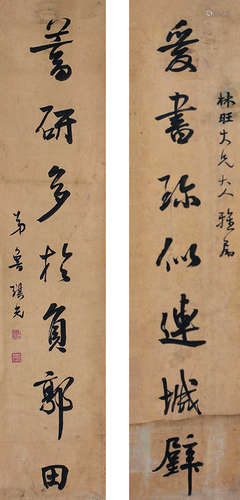 爱書珎似連城璧
林旺大兄大人雅属
蓄研多於負郭田
弟魯琪光